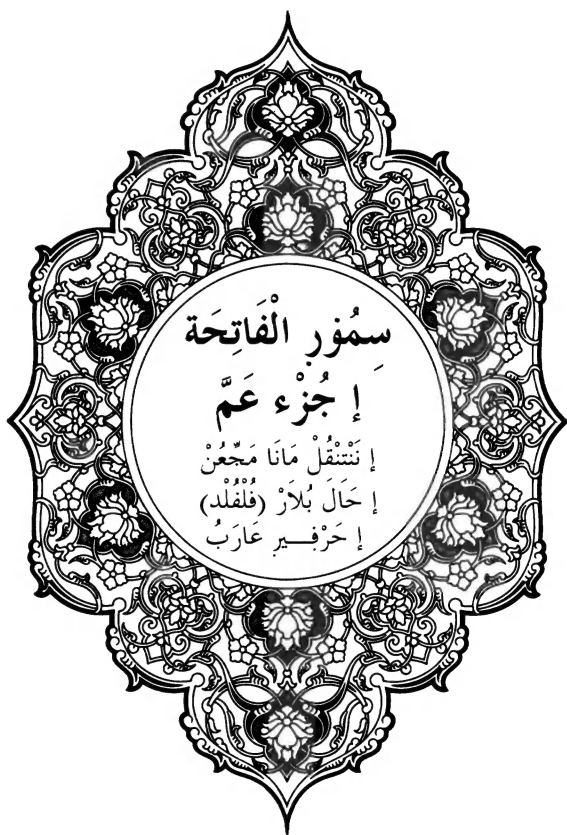 سِمُوْرِ الْفَاتِحَة
إِ جُزْء عَمَّ
إِ نَنْتِنْقُلْ مَانَا مَجِّعُنْ
إِ حَالَ بُلَارْ (فُلْفُلْد)
إِ حَرْفِـــيرِ عَارَبُ